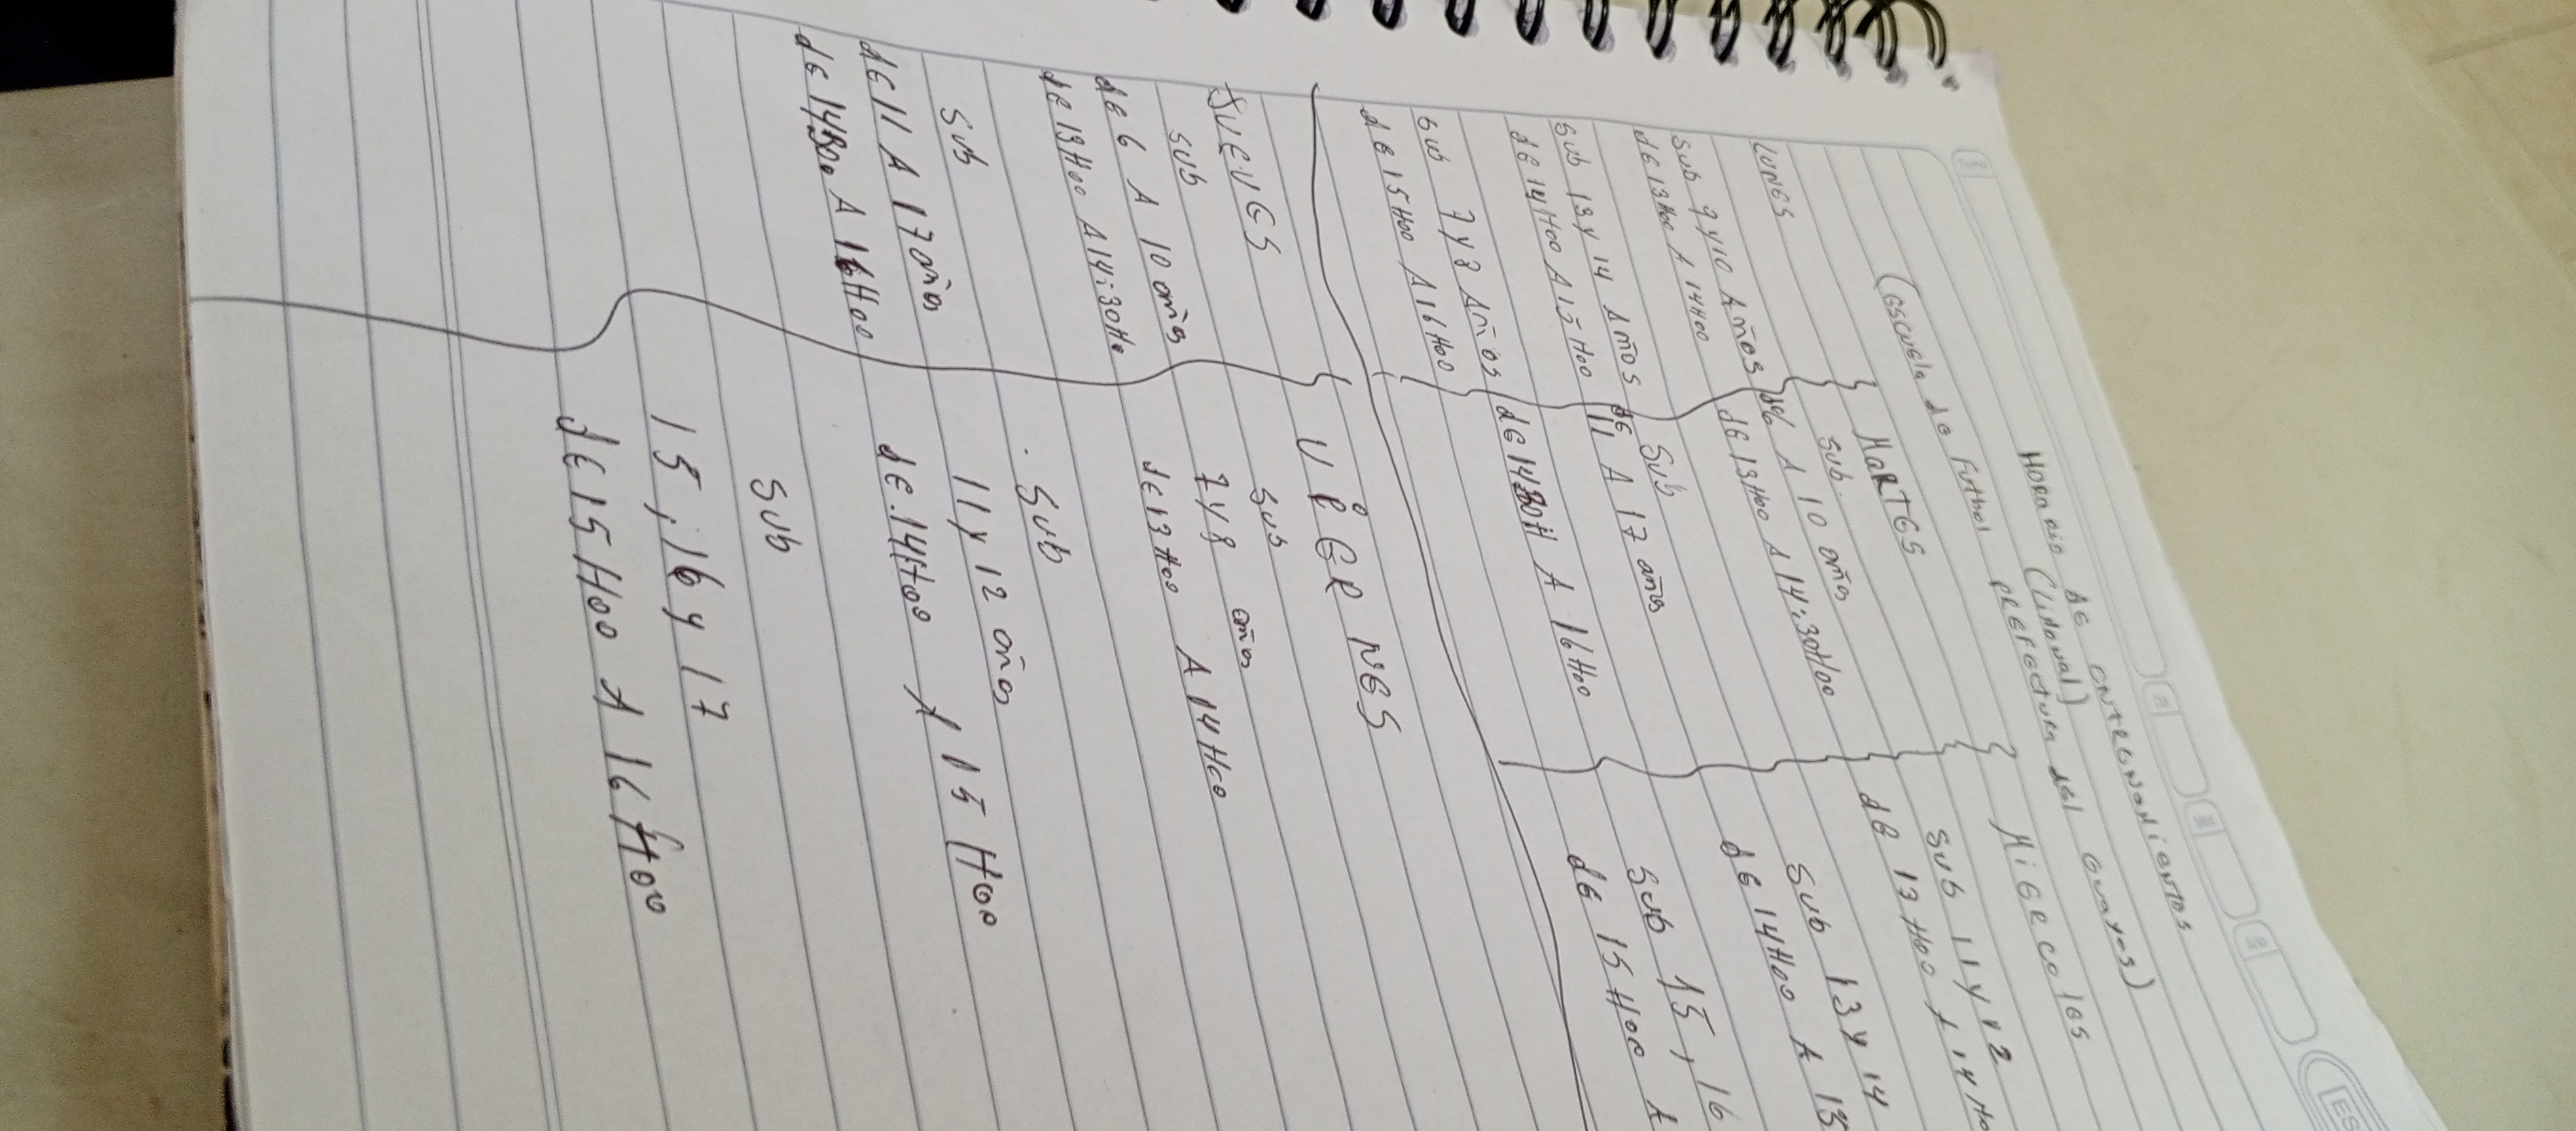 HORARIO DE ENTRENAMIENTOS
(Lidonal)
(ESCUELA de Futbol PREFECTURA del GUAYAS)
LUNES
Sub 9 y 10 Años
de 13H00 A 14H00
Sub 13 y 14 Años
de 14H00 A 15H00
Sub 7 y 8 Años
de 15H00 A 16H00
MARTES
Sub.
de 6 A 10 años
de 13H00 A 14:30H00
Sub
de 11 A 17 años
de 1430H A 16H00
Miercoles
Sub 11 y 12
de 13H00 A 14H0
Sub 13 y 14
de 14H00 A 15
Sub 15, 16
de 15H00 A
JUEVES
SUB
de 6 A 10 años
de 13H00 A 14:30H0
Sub
de 11 A 17 años
de 1430 A 16H00
VIERNES
Sub
7 y 8 años
de 13H00 A 14H00
Sub
11 y 12 años
de 14H00 A 15H00
Sub
15, 16 y 17
de 15H00 A 16H00